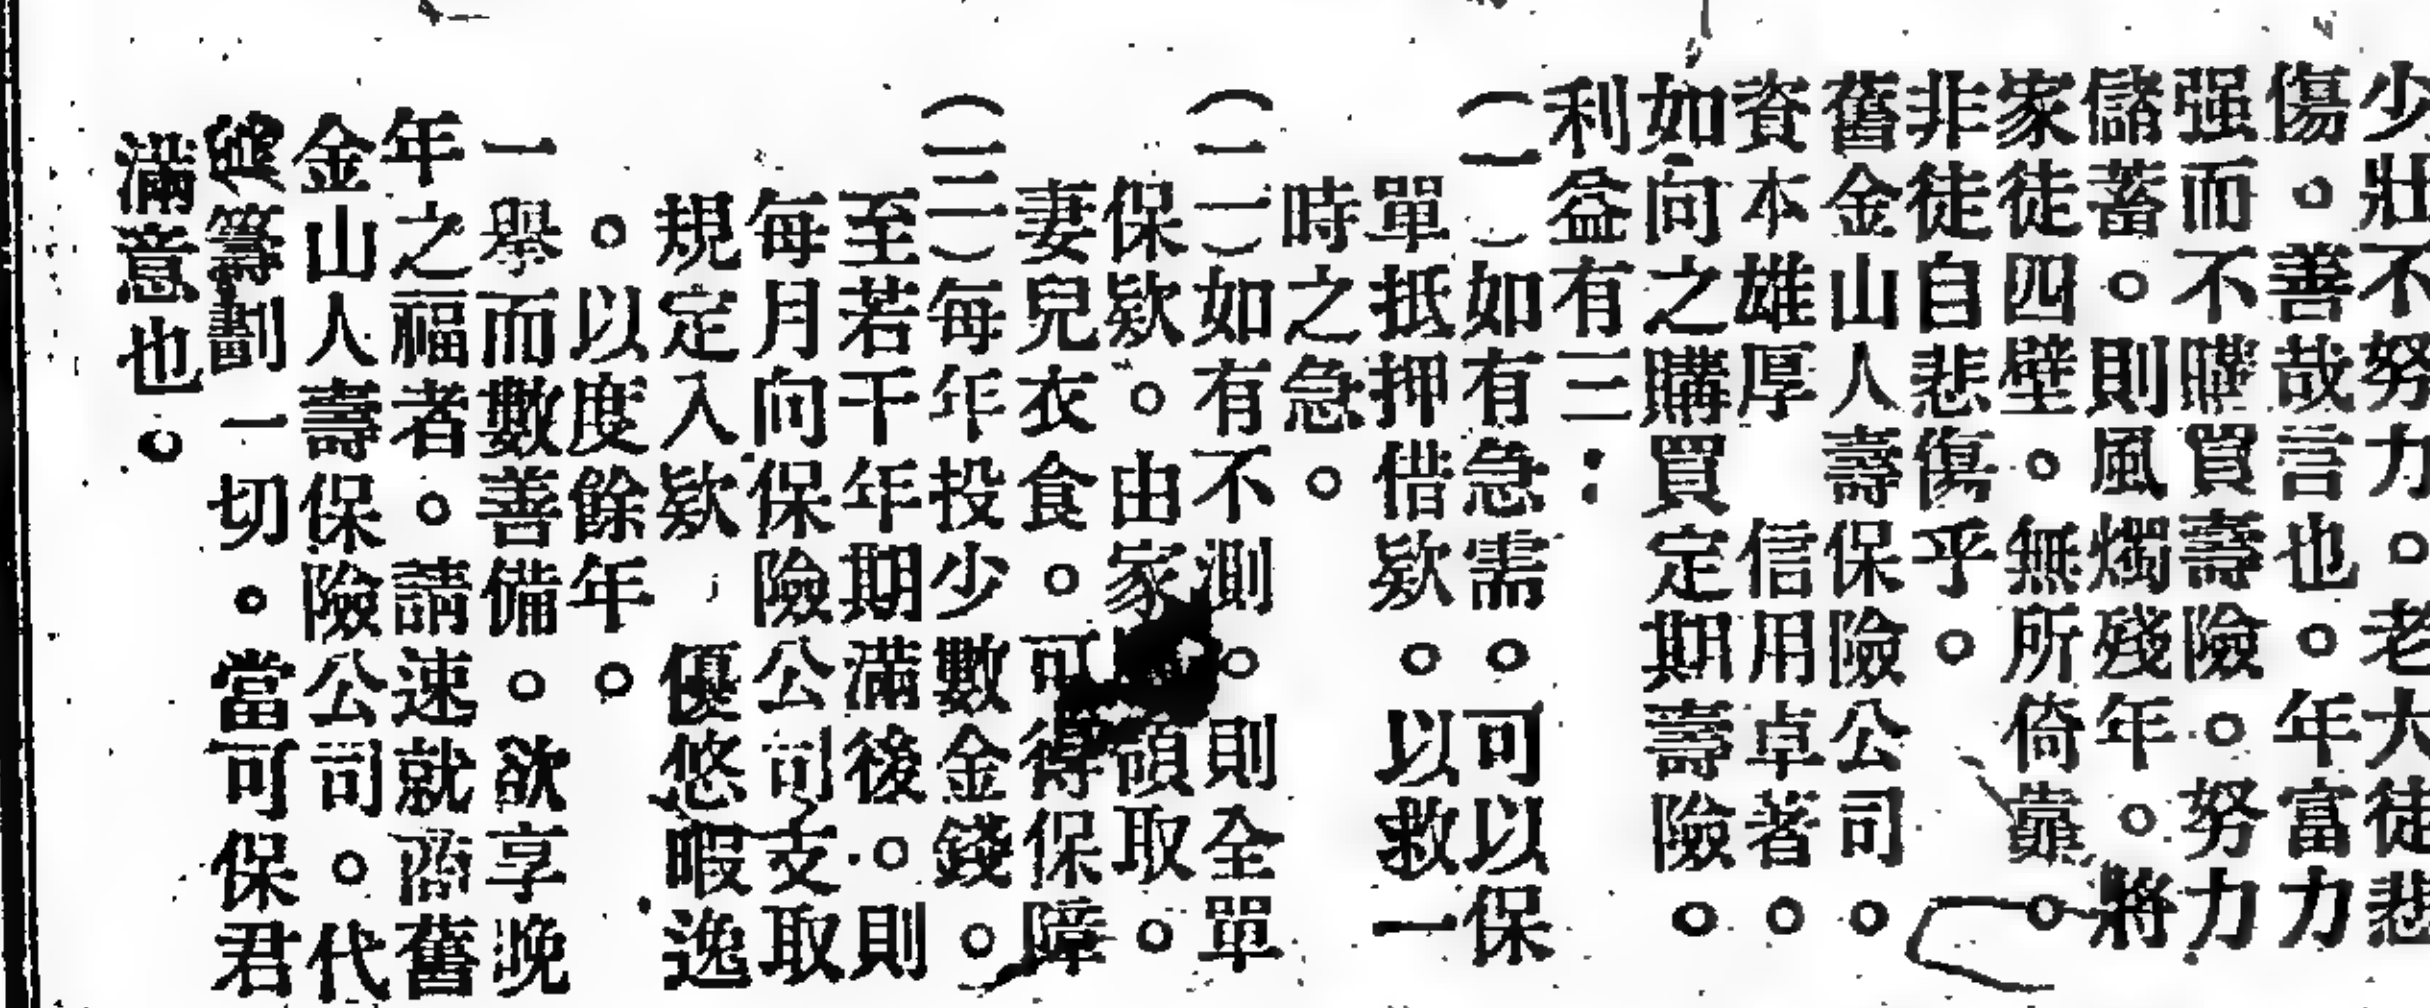 少壯不努力。老大徒悲
傷。善哉言也。年富力
强而不購買壽險。努力
儲蓄。則風燭殘年。將
家徒四壁。無所倚靠。
非徒自悲傷乎。
舊金山人壽保險公司。
資本雄厚 信用卓著。
如向之購買定期壽險。
利益有三：
（一）如有急需。可以保
單抵押借欵。以救一
時之急。
（二）如有不測。則全單
保欵。由家 領取。
妻兒衣食。可得保障
（三）每年投少數金錢。
至若干年期滿後。則
每月向保險公司支取
規定入欵 優悠暇逸
。以度餘年。
一舉而數善備。欲享晚
年之福者。請速就商舊
金山人壽保險公司。代
籌劃一切。當可保君
滿意也。